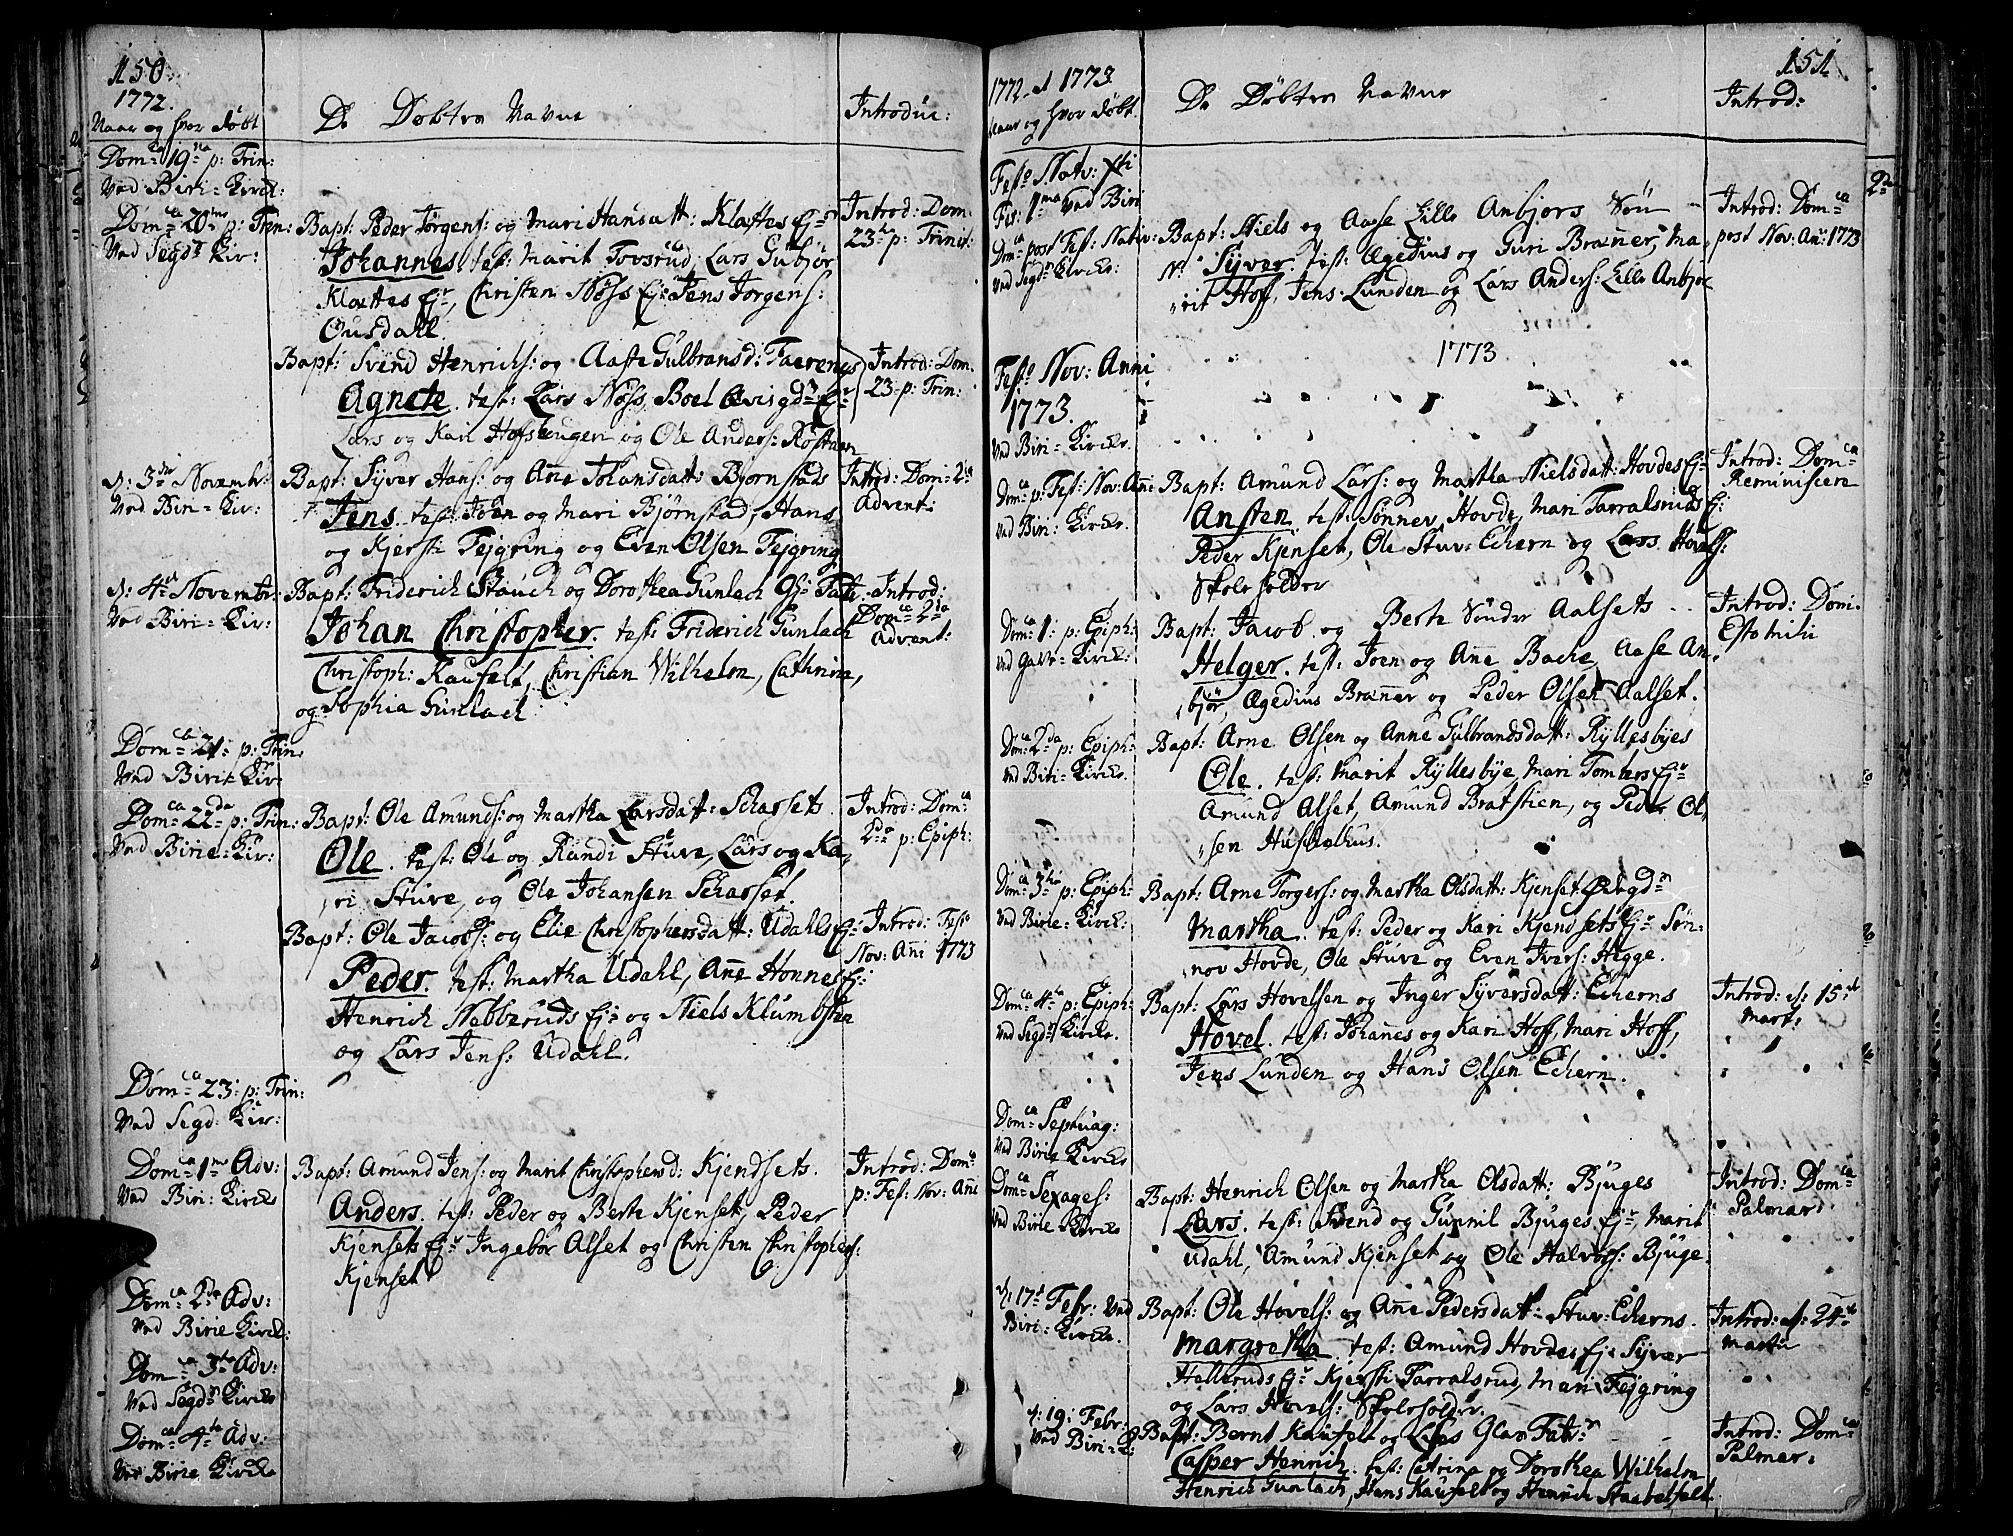 150
1772.
Naar og hvor døbt
De Døbtes Navne
Introduc:
Dom:ca 19na p: Trin:
Ved Biri-Kirch:
Dom:ca 20ms p: Trin:
Ved Segd: Kir:
Bapt: Peder Jørgens: og Mari Hansdatt: Klættes Ejr
Johannes. test: Marit Lars Gubjør
Klættes Ejr, Christen Nøss Ej: Jens Jørgens:
Ousdall.
Introd: Dom.
23ta p: Trinit:
Bapt: Svend Henrichs: og Aaste Gulbransd: Faerengs
Agnete. test: Lars Nøss, Boel Ejr
Lars og Kari Hofshaugen og Ole Anders: Røstøen
Introd: Dom.
23- p: Trin:
d: 3die Novembr:
Ved Biri-Kir:
Bapt: Syver Hans: og Anne Johansdatt: Bjørnstads
Jens. test: Joen og Mari Bjørnstad, Hans
og Kjersti Fejgring og Even Olsen Fejgring
Introd: Dom: 2da
Advent:
d: 4de Novembr:
Ved Biri-Kir:
Bapt: Friderich Stauch og Dorothea Gunlach
Johan Christopher. test: Friderich Gunlach
Christoph: Kaufelt, Christian Wilhelm, Cathrine,
og Sophia Gunlach
Introd:
Dom:ca 2da
Advent:
Dom:ca 21: p: Trin:
Ved Biri-Kir-
Dom:ca 22da p: Trin:
Ved Birie-Kir:
Bapt: Ole Amunds: og Martha Larsdatt: Scharsets
Ole. test: Ole og Randi Stuve, Lars og Ka-
ri Stuve, og Ole Johansen Scharset.
Introd: Dom:ca
2da p: Epiph:
Bapt: Ole Jacobs: og Elie Christophersdatt: Udahls Ejr
Peder. test: Martha Udahl, Anne Honnes Ej:
Henrich Nebberuds Ej: og Niels Klumbsten
og Lars Jens: Udahl.
Introd: Festo
Nov: Anni 1773
Dom:ca 23: p: Trin:
Ved Segd: Kir:
Dom:ca 1ma Adv:
Ved Biri: Kircke
Bapt: Amund Jens: og Marit Christophersd: Kjendsets.
Anders. test: Peder og Berte Kjenset, Peder
Kjensets Ejr Ingebor Alset og Christen Christophers:
Kjenset
Introd: Dom:ca
p: Fes: Nov: Anni
Dom:ca 2da Adv:
Ved Birie Kirck:
Dom:ca 3tia Adv:
Ved Segd: Kircke
Dom:ca 4ta Adv:
Ved Birie Kircke
151
1772. et 1773.
Naar og hvor døbt.
De Døbtes Navne
Introd:
Festo Nativ: Xti
Fes: 1ma Ved Biri
Dom:ca post Fes: Nativ:
Ved Segd: Kircke:
Bapt: Niels og Aase Lille Anbjørs Søn
Syver. test: Ægedius og Guri Brænner, Ma-
rit Hoff, Jens Lunden og Lars Anders: Lille Anbjør
Introd: Dom:ca
post Nov: An: 1773
1773.
Festo Nov: Anni
1773.
Ved Biri-Kircke.
Dom:ca p: Fes: Nov: Anni
Ved Biri: Kircke.
Bapt: Amund Lars: og Martha Nielsdatt: Hovdes Ejr
Ansten. test: Sønnev Hovde, Mari Tarralsruds Ej:
Peder Kjenset, Ole Stuv: Echern og Lars Hovels:
Skoleholder
Introd: Dom:ca
Reminiscere
Dom:ca 1: p: Epiph:
Ved Kirck:
Bapt: Jacob og Berte Sønder Aalsets
Helger. test: Joen og Anne Bache, Aase An-
bjør, Ægedius Brænner og Peder Olsen Aalset.
Introd: Dom.
Estomihi
Dom:ca 2da p: Epiph:
Ved Biri: Kircke.
Bapt: Arne Olsen og Anne Gulbrandsdatt: Ryllesbyes
Ole. test: Marit Ryllesbye, Mari Tomters Ejr
Amund Alset, Amund Bratstien, og Peder Ol-
sen Huskelhus.
Dom:ca 3tia p: Epiph:
Ved Birie-Kirck:
Bapt: Arne Torgers: og Martha Olsdatt: Kjenset
Martha. test: Peder og Kari Kjendsets Ejr Søn-
nov Hovde, Ole Stuve og Even Ivers: Hegge.
Dom:ca 4ta p: Epiph:
Ved Segd: Kircke.
Bapt: Lars Hovelsen og Inger Syversdatt: Echerns
Hovel. test: Johannes og Kari Hoff, Mari Hoff,
Jens Lunden og Hans Olsen Echern.
Introd: d: 15de
Mart:
Dom:ca Septuag:
Ved Birie Kircke
Dom:ca Sexages:
Ved Birie Kircke
Bapt: Henrich Olsen og Martha Olsdatt: Bjuges
Lars. test: Svend og Gunnil Bjuges Ejr, Marit
Udahl, Amund Kjenset og Ole Halvors: Bjuge.
Introd: Dom:ca
Palmar:
d: 17de Febr: Ved
Biri-Kircke.
Bapt: Ole Hovels: og Anne Pedersdatt: Stuv: Echerns.
Margretha. test: Amund Hovdes Ej: Syver
Hellebruds Ejr Kjersti Tarralsrud, Mari Fejgring
og Lars Hovels: Skoleholder.
Introd: d: 24de
Martii
d: 19: Febr:
Ved Biri-K:
Bapt: Bernt Kaufelt og Glas Fabr:
Casper Henrich. test: Catrina og Dorothea Wilhelm
Henrich Gunlach, Hans Kaufelt og Henrich
Introd: Dom:ca
Palmar: